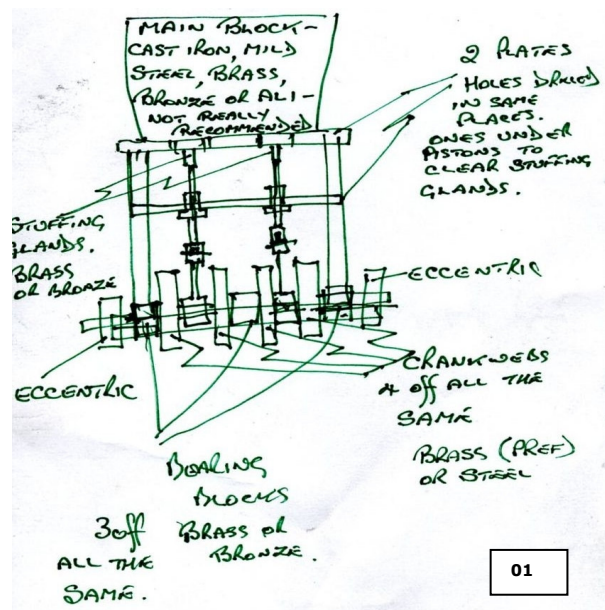 MAIN BLOCK-
CAST IRON, MILD
STEEL, BRASS,
BRONZE OR ALI-
NOT REALLY
RECOMMENDED
2 PLATES
HOLES DRILLED
IN SAME
PLACES.
ONES UNDER
PISTONS TO
CLEAR STUFFING
GLANDS.
STUFFING
GLANDS.
BRASS
OR BRONZE
ECCENTRIC
ECCENTRIC
CRANKWEBS
4 off ALL THE
SAME
BRASS (PREF)
OR STEEL
BEARING
BLOCKS
3 off BRASS OR
ALL THE BRONZE.
SAME.
01